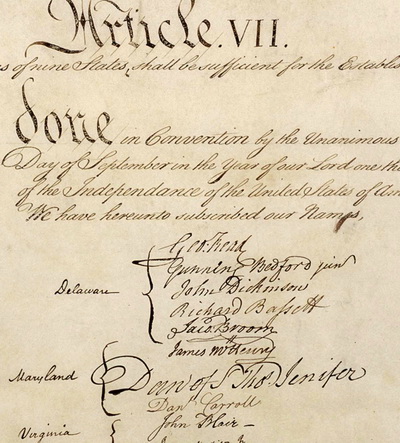 Article. VII.
s of nine States, shall be sufficient for the Establis
done in Convention by the Unanimous
Day of September in the Year of our Lord one tho
of the Independance of the United States of Am
We have hereunto subscribed our Names,
Geo: Read
Gunning Bedford jun
John Dickinson
Delaware
Richard Bassett
Jaco: Broom
James McHenry
Maryland
Dan of St Thos. Jenifer
Danl Carroll
John Blair —
Virginia